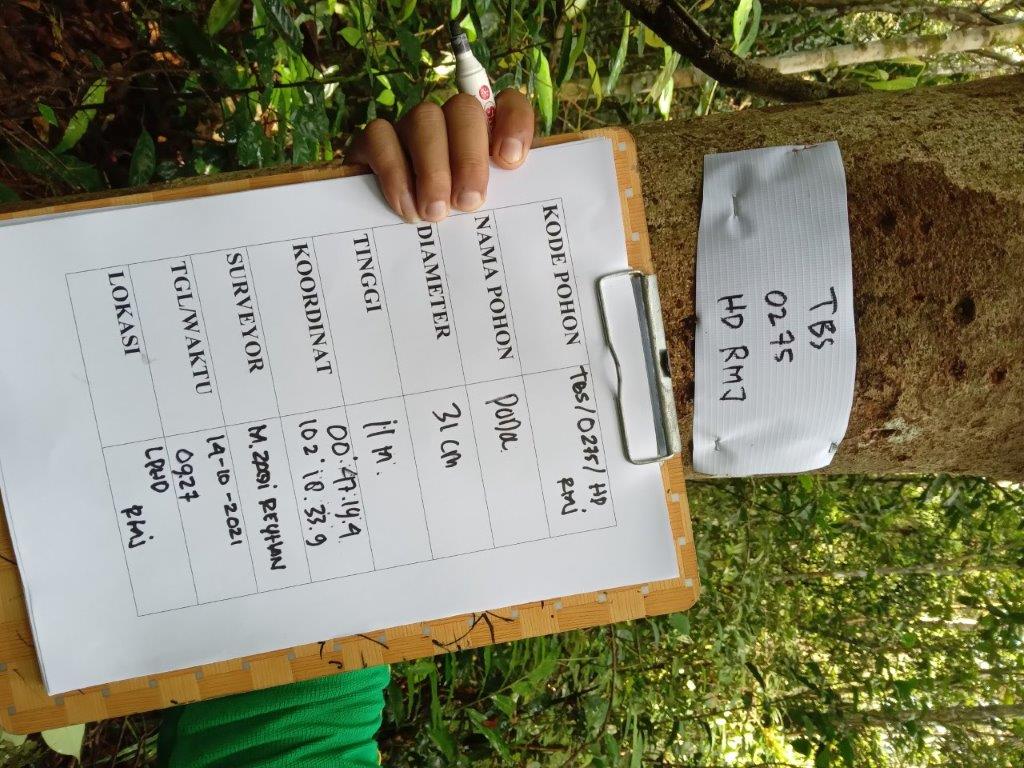 TBS
0275
HD RMJ
KODE POHON TBS/0275/ HD
RMJ
NAMA POHON DODA
DIAMETER 31 cm
TINGGI 11 M.
KOORDINAT 00°.47.19.4
102° 18.33.9
SURVEYOR M. ZADI REYHAN
TGL/WAKTU 14-10-2021
0927
LOKASI LPHD
RMJ